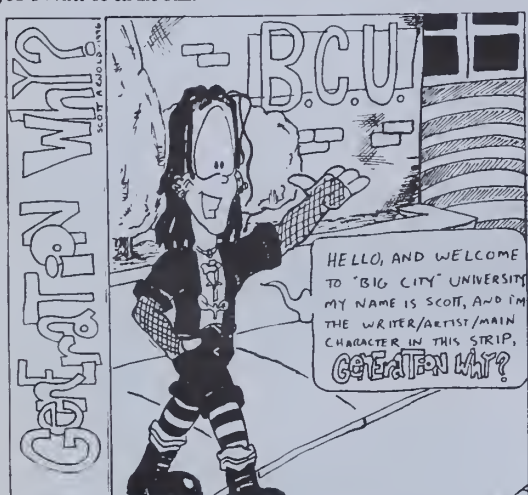 GenEraTiON WhY?
SCOTT ARNOLD·1996
B.C.U.
HELLO, AND WELCOME
TO "BIG CITY" UNIVERSITY
MY NAME IS SCOTT, AND i'M
THE WRITER/ARTIST/MAIN
CHARACTER IN THIS STRIP,
GENErATiON WhY?